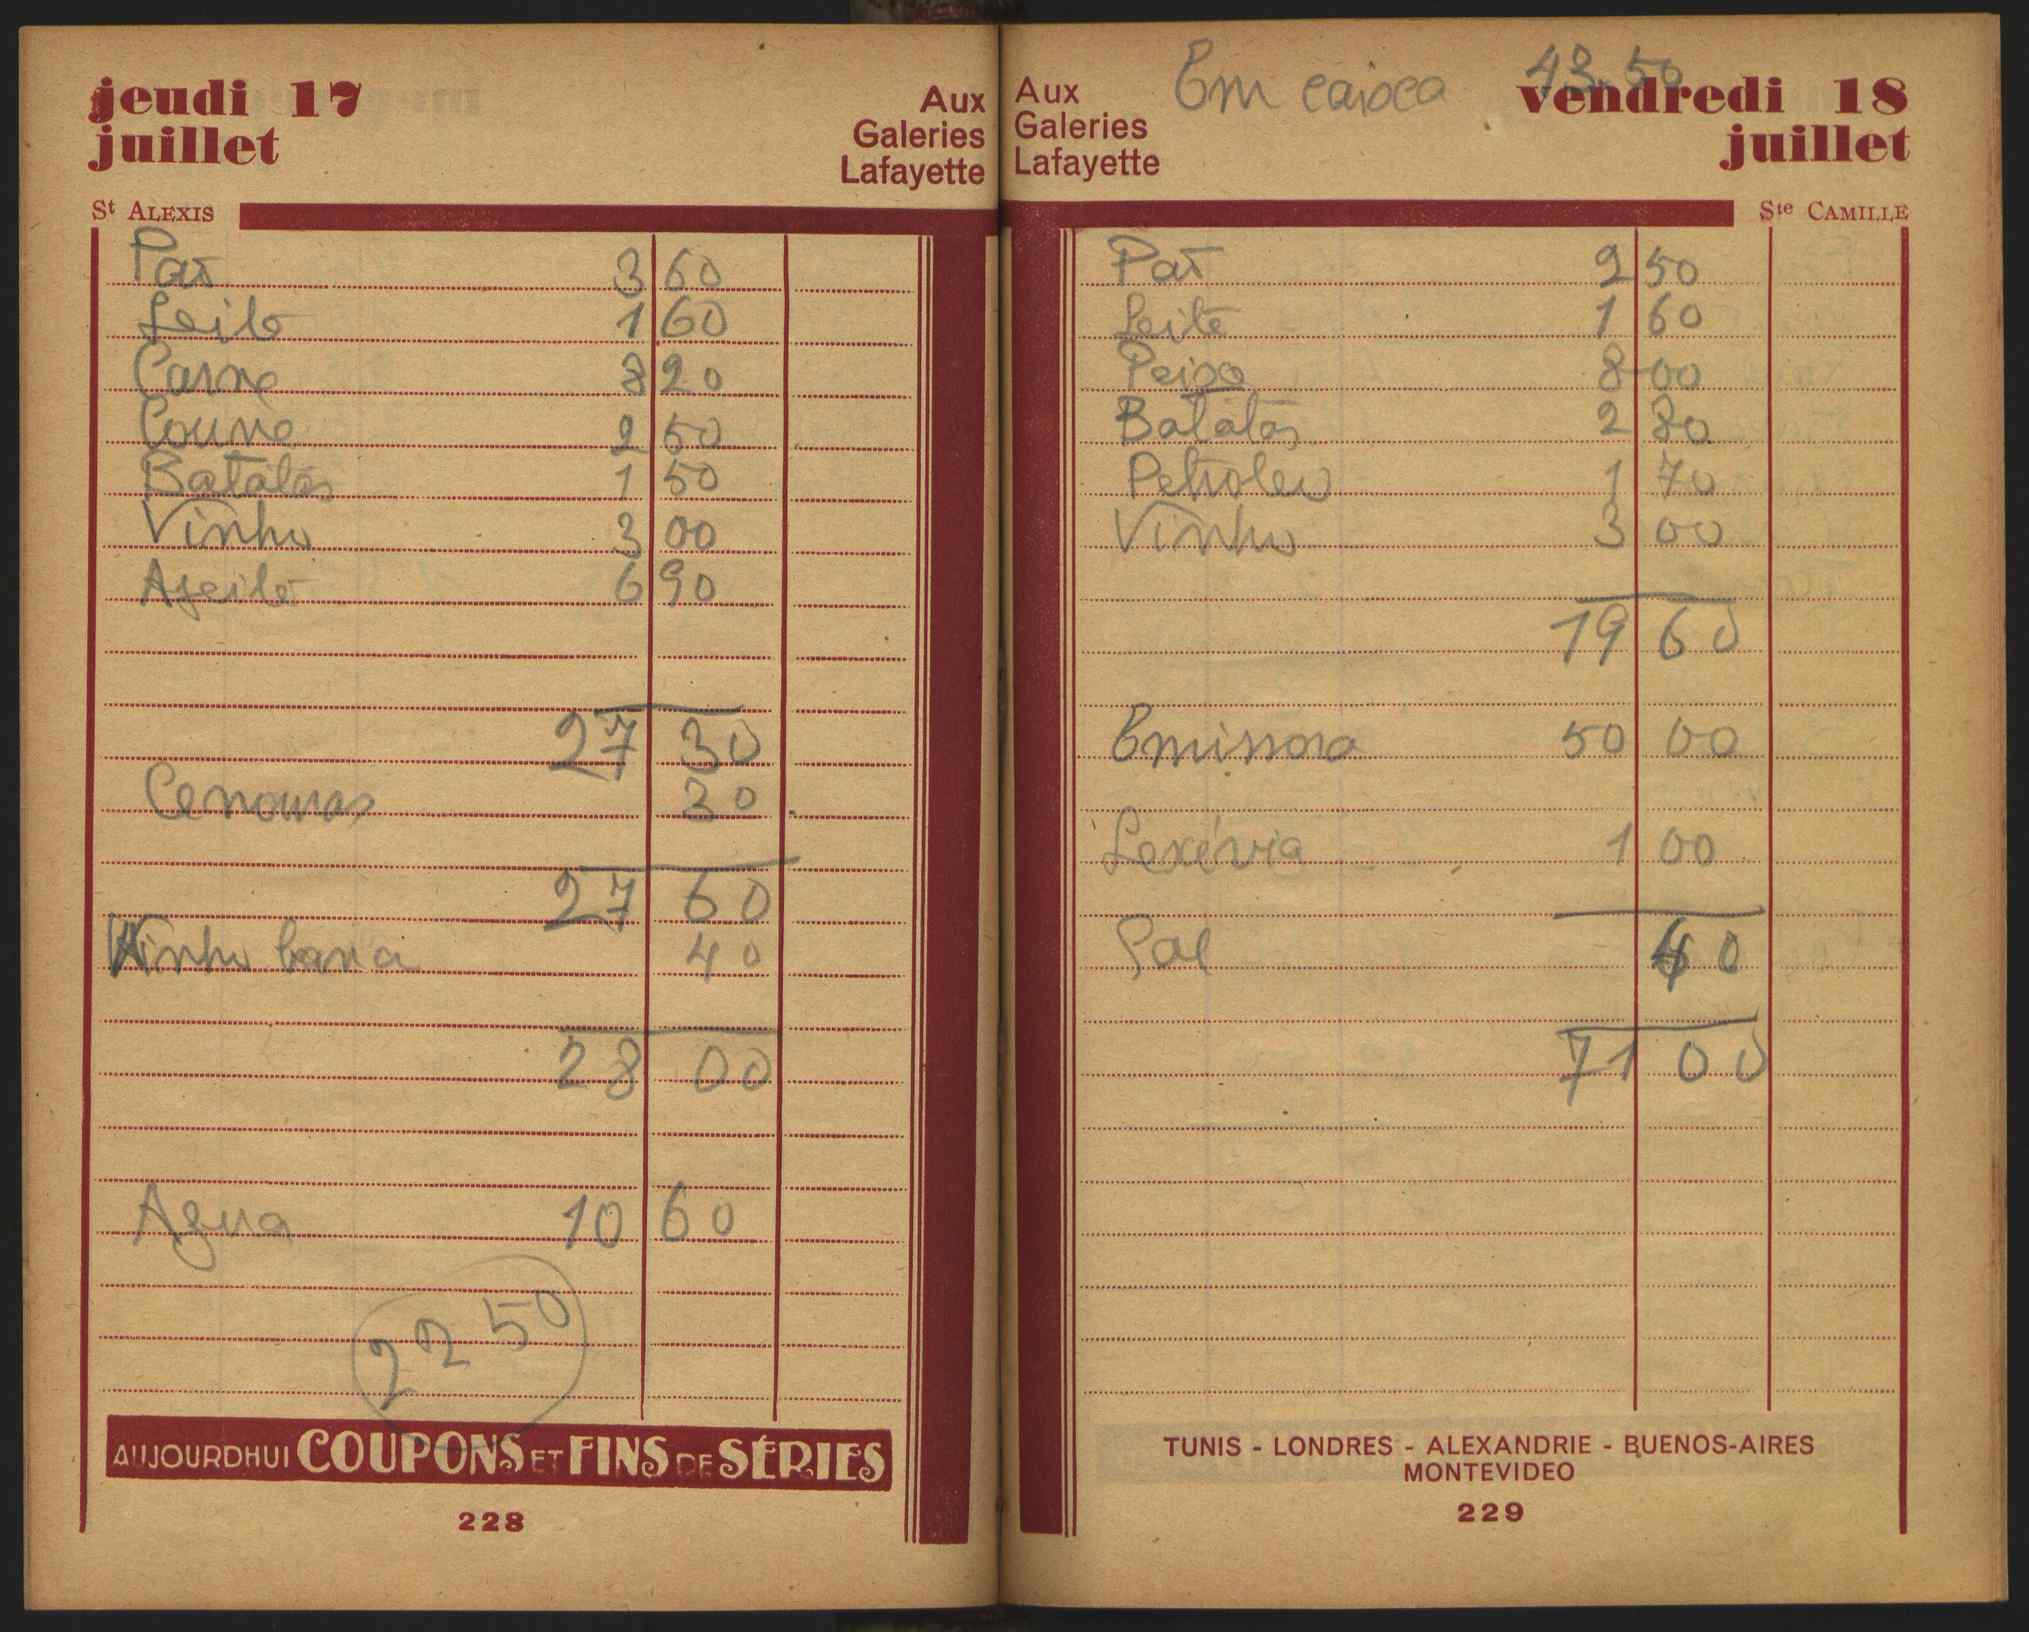 jeudi 17
juillet
Aux
Galeries
Lafayette
St ALEXIS
Pão 3 60
Leite 1 60
Carne 8 20
Couve 2 50
Batatas 1 50
Vinho 3 00
Azeite 6 90
27 30
Cenouras 30
27 60
Vinho 40
28 00
Agua 10 60
22 50
AUJOURDHUI COUPONS ET FINS DE SÉRIES
228
Aux
Galeries
Lafayette
Em caixa 43.50
vendredi 18
juillet
Ste CAMILLE
Pão 2 50
Leite 1 60
Peixe 8 00
Batatas 2 80
Petroleo 1 70
Vinho 3 00
19 60
50 00
Lexívia 1 00
Sal 40
71 00
TUNIS - LONDRES - ALEXANDRIE - BUENOS-AIRES
MONTEVIDEO
229